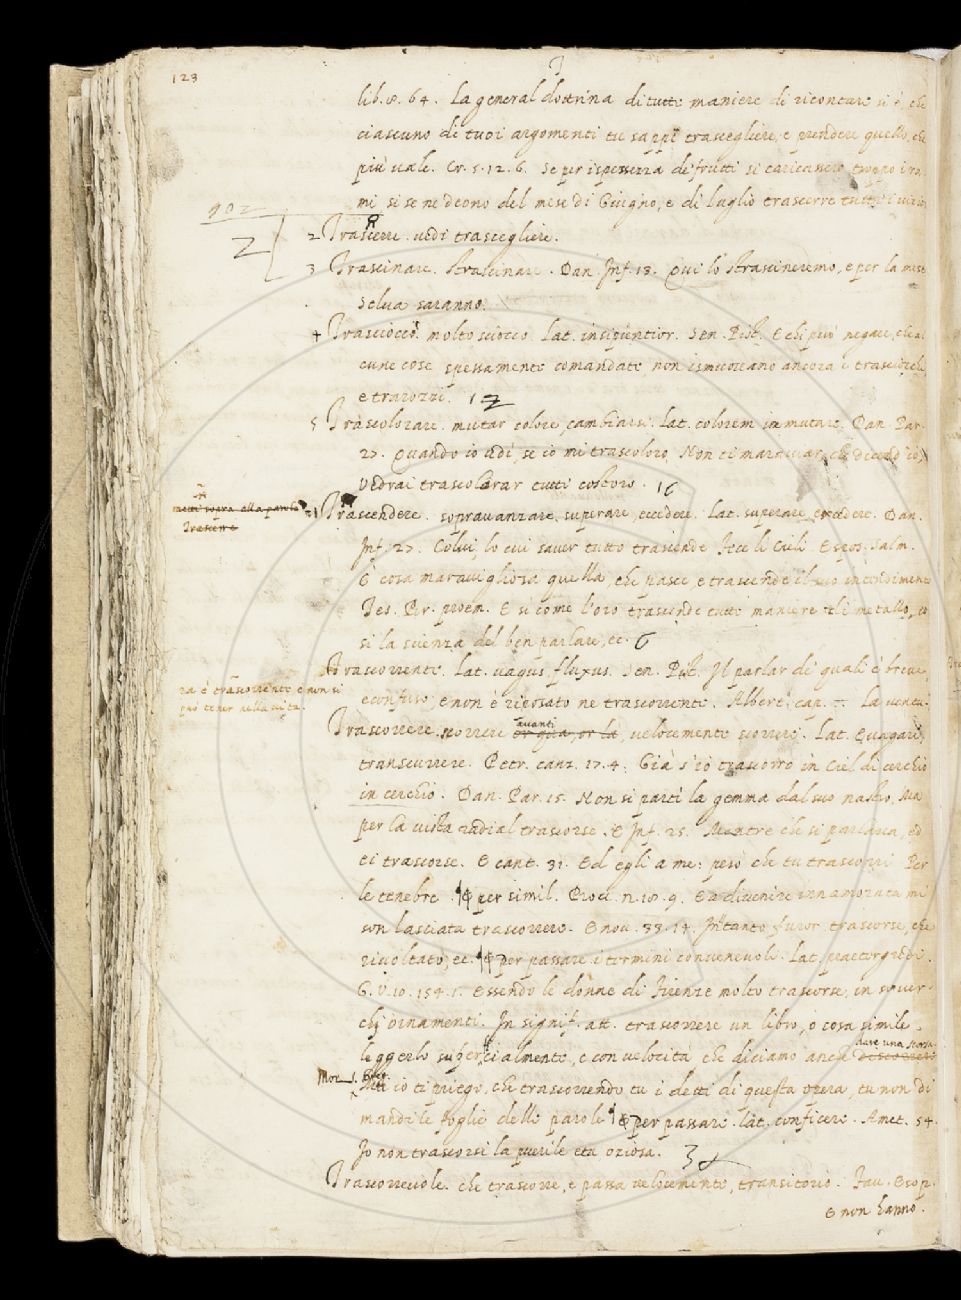 123
T
lib. 8. 64. La general dottrina di tutte maniere di ricontare si è, che
ciascuno di tuoi argomenti tu sappi trascegliere, e prendere quello, che
più vale. Cr. 5. 12. 6. Se per ispessezza di frutti si caricassero troppo i ra
mi si se ne deono del mese di Giugno, e di luglio trascerre tutti i
902
2 Trascerre. vedi trascegliere.
Z
3 Trascinare. strascinare. Dan. Inf. 13. Qui lo strascineremo, e per la mesta
Selva saranno.
4 Trasciocco. molto sciocco. Lat. insipientior. Sen. Pist. E chi può negare, che al
cune cose spessamente comandate non ismuovano ancora i
e trarozzi. 12
5 Trascolorare. mutar colore, cambiarsi. Lat. colorem immutare. Dan. Par.
27. Quando io udì, se io mi trascoloro, Non ti maravigliar, che dicend' io,
Vedrai trascolorar tutti costoro. 16
metti sopra alla parola
Trascerre
1 Trascendere. sopravanzare, superare, eccedere. Lat. superare, excedere. Dan.
Inf. 27. Colui lo cui saver tutto trascende Fece li Cieli. Espos. Salm.
È cosa maravigliosa quella, che pasce, e trascende il suo intendimento
Tes. Br. proem. E sì come l'oro trascende tutte maniere di metallo, co
sì la scienza del ben parlare, ec. 6
Trascorrente. Lat. vagus, fluxus. Sen. Pist. Il parlar di quali è breve,
ra è trascorrente e non si
può tener nella vita.
e confuso, e non è riposato ne trascorrente. Albert. cap. La ventu-
Trascorrere. scorrere avanti or qua, or là, velocemente scorrere. Lat. evagari,
transcurrere. Petr. canz. 17. 4. Già s'io trascorro in Ciel di cerchio
in cerchio. Dan. Par. 15. Non si partì la gemma dal suo nastro, Ma
per la lista radial trascorse. E Inf. 25. Mentre che sì parlava, ed
ei trascorse. E cant. 31. Ed egli a me: però che tu trascorri Per
le tenebre. per simil. Bocc. n. 18. 9. E a divenire innamorata mi
son lasciata trascorrere. E nov. 33. 14. In tanto furor trascorse, che
rivoltato, ec. per passare i termini convenevoli. Lat. praetergredi.
G. V. 10. 154. 1. Essendo le donne di Firenze molto trascorse, in sover-
chj ornamenti. In signif. att. trascorrere un libro, o cosa simile.
leggerlo superficialmente, e con velocità che diciamo anche dare una scorsa
Mor. S. Greg.
io ti priego, che trascorrendo tu i detti di questa opera, tu non di
mandi le foglie delle parole per passare. lat. conficere. Amet. 54.
Io non trascorsi la puerile età oziosa. 34
Trascorrevole. che trascorre, e passa velocemente, transitorio. Fav. Esop.
E non hanno.